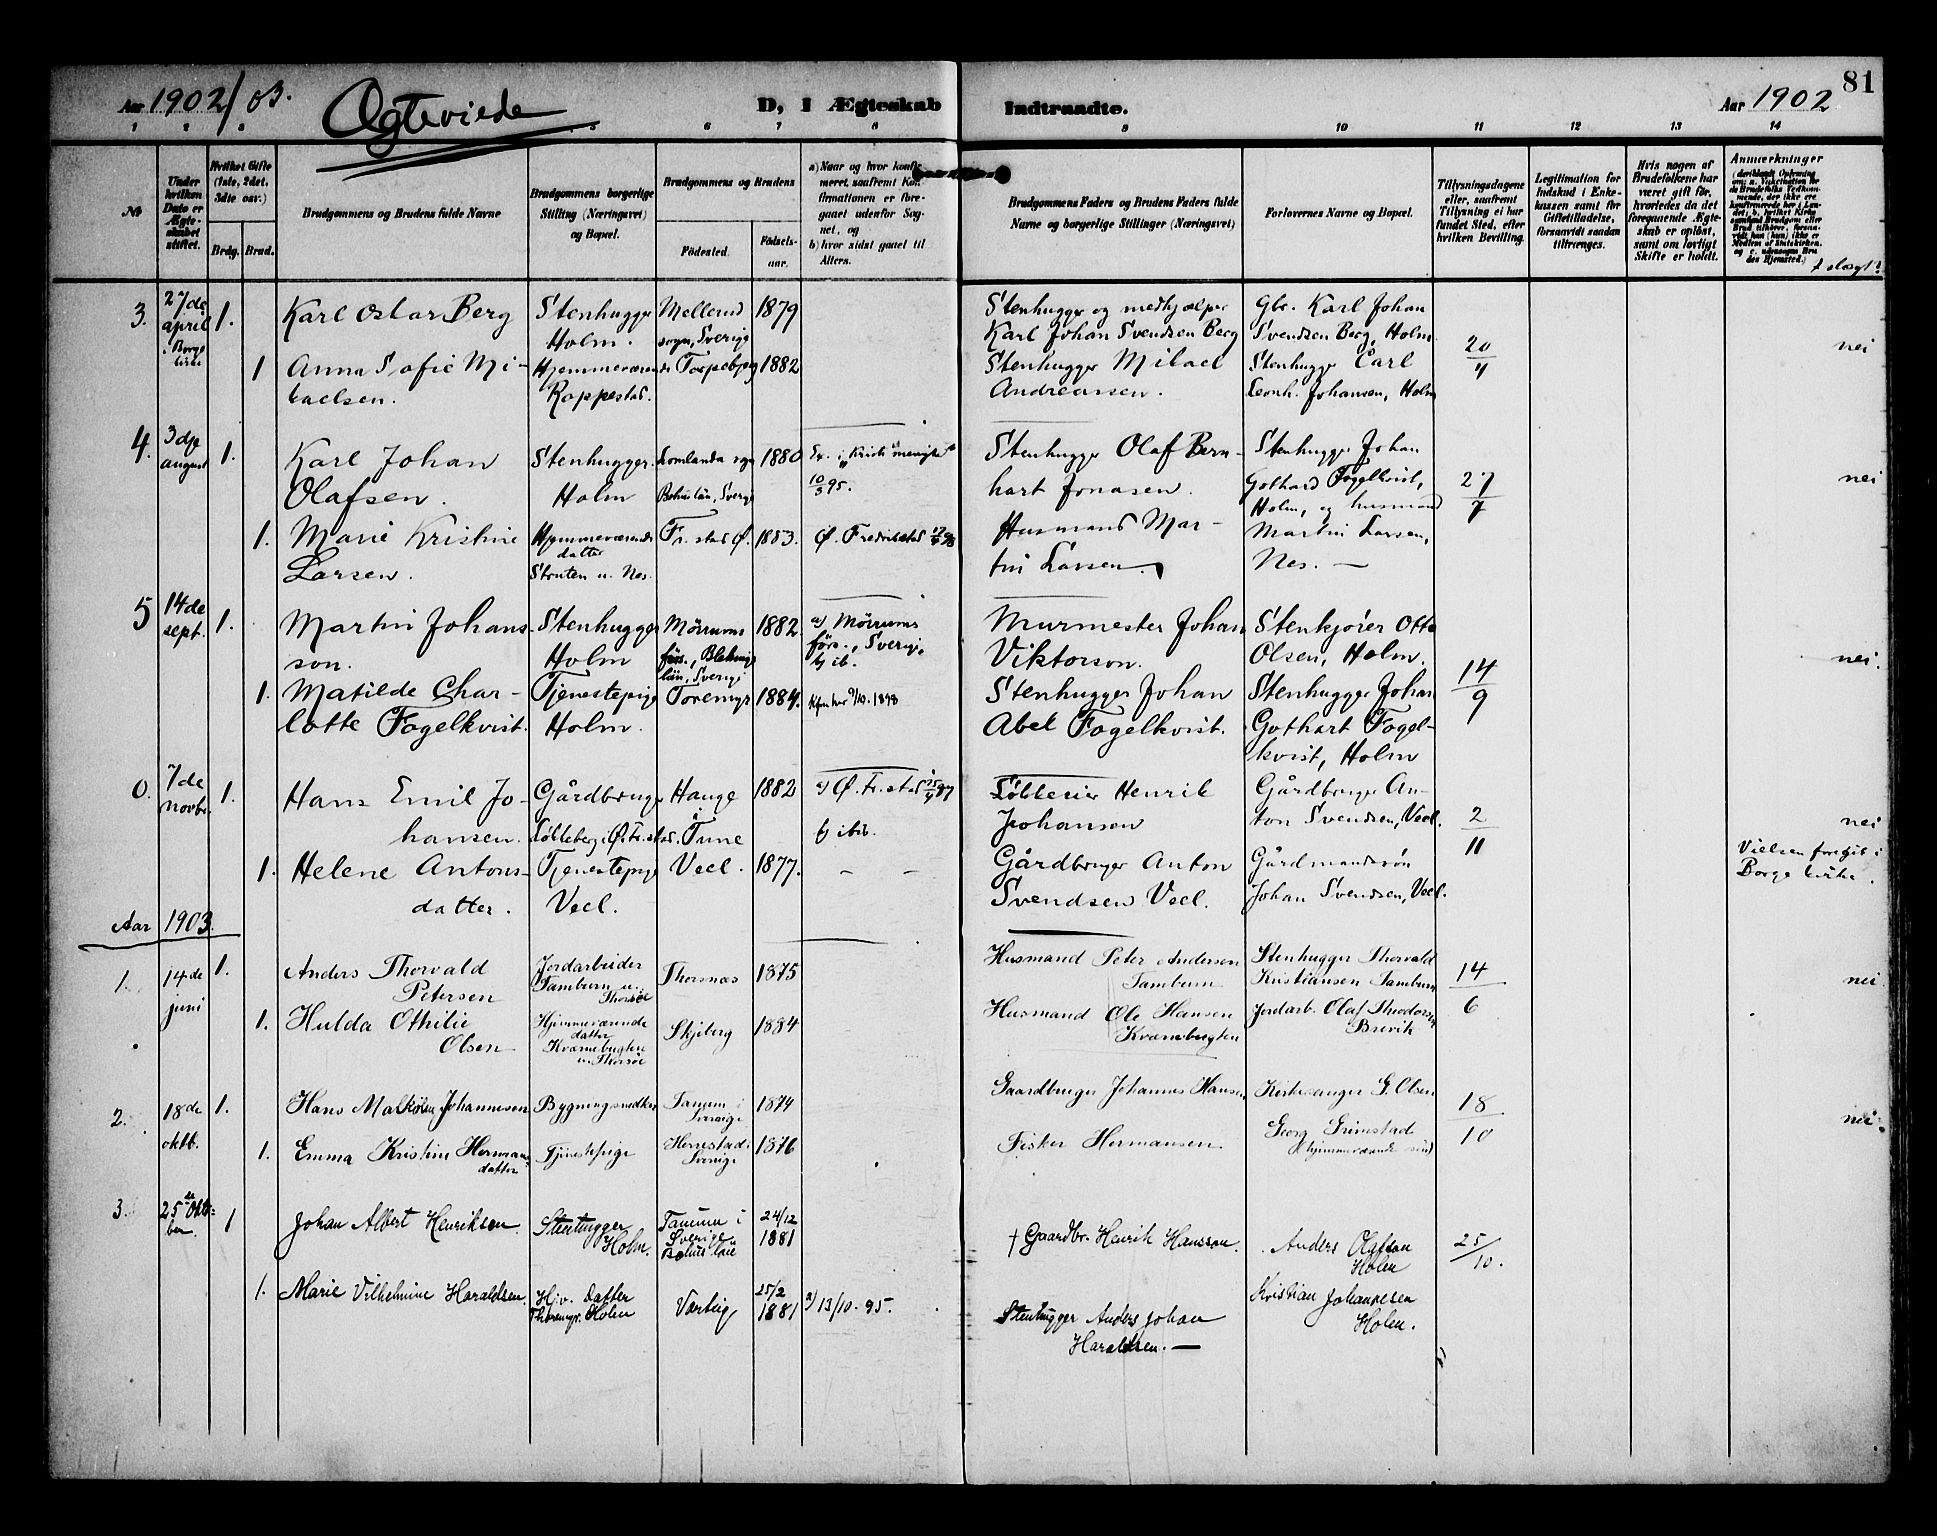 Aar 1902/03.
Ægteviede
D, I Ægteskab Indtraadte.
Aar 1902
81
1 2 3 5 6 7 8 9 10 11 12 13 14
№
Under hvilken Dato er Ægteskabet stiftet.
Hvilket Gifte (1ste, 2det, 3die osv.)
Brdg. Brud.
Brudgommens og Brudens fulde Navne
Brudgommens borgerlige Stilling (Næringsvei) og Bopæl.
Brudgommens og Brudens
Fødested. Fødselsaar.
a) Naar og hvor konfirmeret, saafremt Konfirmationen er foregaaet udenfor Sognet, og
b) hvor sidst gaaet til Alters.
Brudgommens Faders og Brudens Faders fulde Navne og borgerlige Stillinger (Næringsvei)
Forlovernes Navne og Bopæl.
Tillysningsdagene eller, saafremt Tillysning ei har fundet Sted, efter hvilken Bevilling.
Legitimation for Indskud i Enkekassen samt for Giftetilladelse, forsaavidt saadan tiltrænges.
Hvis nogen af Brudefolkene har været gift før, hvorledes da det foregaaende Ægteskab er opløst, samt om lovligt Skifte er holdt.
Anmærkninger
3. 27de april i Borge kirke 1. Karl Oskar Berg Stenhugger Holm. Mellerud sogn, Sverige 1879
Stenhugger og medhjælper Karl Johan Svendsen Berg
Gbr. Karl Johan Svendsen Berg, Holm.
20/4 nei
1 Anna Sofie Mikaelsen. Hjemmeværende Roppestad. Torpebjerg 1882
Stenhugger Mikael Andreassen.
Stenhugger Carl Leonh. Johansen, Holm
4. 3die august 1. Karl Johan Olafsen. Stenhugger. Holm Lomlanda sogn Bohuslän, Sverige 1880 10/3 95.
Stenhugger Olaf Bernhart Jonasen.
Stenhugger Johan Gothard Fogelkvist, Holm, og husmand Martin Larsen, Nes.
27/7 nei
1. Marie Kristine Larsen. Hjemmeværende datter Struten u. Nes. Fr.stad Ø. 1883. Ø. Fredrikstad
Husmand Martin Larsen.
5 14de sept. 1. Martin Johansson. Stenhugger Holm Mörrums förs., Blekinge län, Sverige 1882. a) Mörrums förs., Sverige, b) ib.
Murmester Johan Viktorson.
Stenkjører Otto Olsen, Holm.
14/9 nei.
1. Matilde Charlotte Fogelkvist. Tjenestepige Holm. Toremyr 1884. Kfm her 9/10. 1898
Stenhugger Johan Abel Fogelkvist.
Stenhugger Johan Gothart Fogelkvist, Holm
0. 7de novbr. 1. Hans Emil Johansen. Gårdbruger Løkkeberg i Ø. Fr.stad. Hauge i Tune 1882 a) Ø. Fr.stad b) ibid.
Henrik Johansen
Gårdbruger Anton Svendsen, Veel.
2/11 nei
1. Helene Antonsdatter. Tjenestepige Veel. Veel. 1877. – –
Gårdbruger Anton Svendsen Veel.
Gårdmandssøn Johan Svendsen, Veel.
Vielsen foregik i Borge kirke.
Aar 1903.
1. 14de juni 1. Anders Thorvald Petersen Jordarbeider Tamburn u. Thorsøe Thorsnæs 1875
Husmand Peter Andersen Tamburn
Stenhugger Thorvald Kristiansen Tamburn
14/6 nei
1. Hulda Othilie Olsen Hjemmeværende datter Kvernebugten u. Thorsøe Skjeberg 1884
Husmand Ole Hansen Kvernebugten
Jordarb. Olaf Theodorsen Brevik
2. 18de oktb. 1. Hans Malkolm Johannesen Bygningssnedker Tanum i Sverige 1874
Gaardbruger Johannes Hansen
Kirkesanger G. Olsen
18/10 nei.
1. Emma Kristine Hermansdatter Tjenestepige Herrestad i Sverige 1876
Fisker Hermansen
Georg Grimstad (hjemmeværende søn)
3. 25de Oktober 1 Johan Albert Henriksen. Stenhugger Holm. Tanum i Sverige Bohuslän 24/12 1881
† Gaardbr. Henrik Hansson.
Anders Olafson Holen
25/10.
1. Marie Vilhelmine Haraldsen. Hjv. datter Thoremyr. Holen Varteig 25/2 1881 a) 13/10. 95.
Stenhugger Anders Johan Haraldsen. —
Kristian Johannesen Holen.